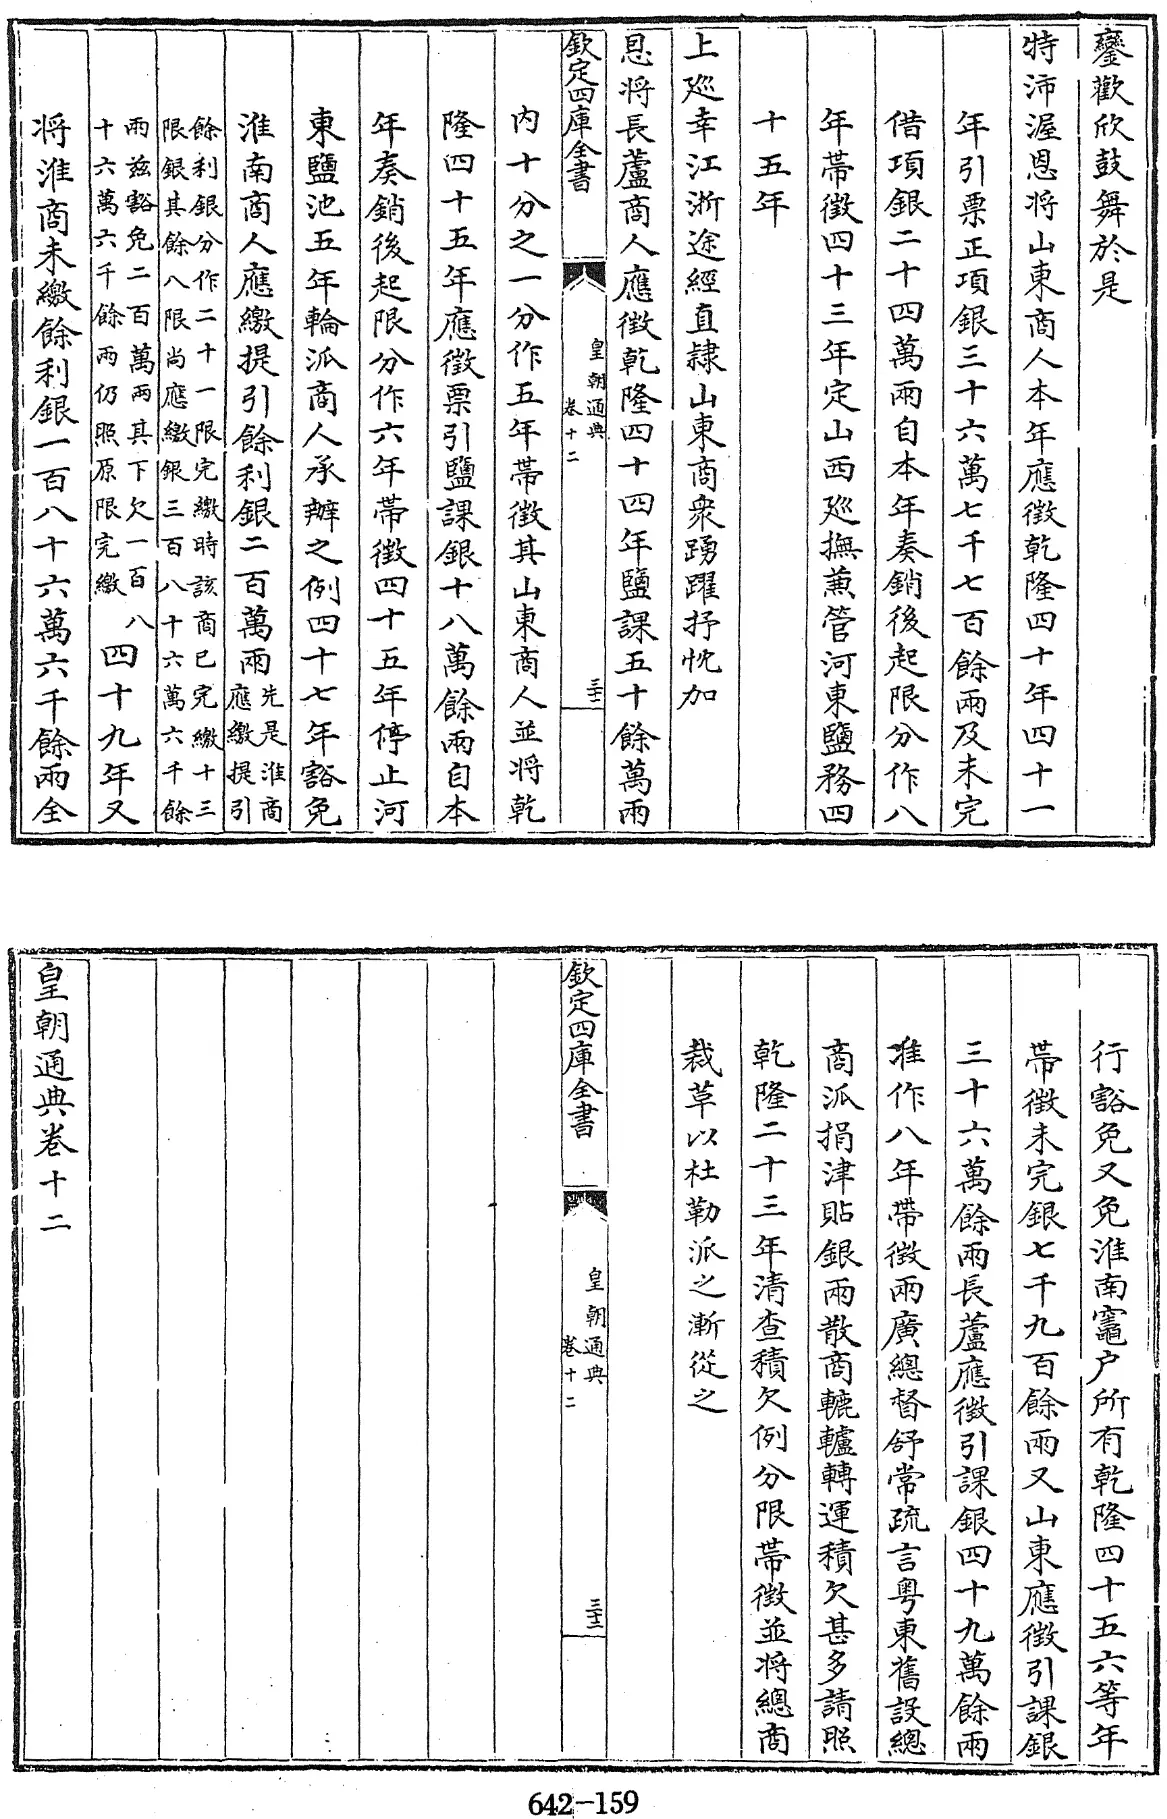 鑾歡欣鼓舞於是
特沛渥恩将山東商人本年應徵乾隆四十年四十一
年引票正項銀三十六萬七千七百餘兩及未完
借項銀二十四萬兩自本年奏銷後起限分作八
年帶徵四十三年定山西廵撫兼管河東鹽務四
十五年
上廵幸江浙途經直隷山東商衆踴躍抒忱加
恩将長蘆商人應徵乾隆四十四年鹽課五十餘萬兩
欽定四庫全書
皇朝通典
卷十二
三十一
内十分之一分作五年帶徵其山東商人並将乾
隆四十五年應徵票引鹽課銀十八萬餘兩自本
年奏銷後起限分作六年帶徵四十五年停止河
東鹽池五年輪派商人承辦之例四十七年豁免
淮南商人應繳提引餘利銀二百萬兩先是淮商
應繳提引
餘利銀分作二十一限完繳時該商已完繳十三
限銀其餘八限尚應繳銀三百八十六萬六千餘
兩兹豁免二百萬兩其下欠一百八
十六萬六千餘兩仍照原限完繳四十九年又
将淮商未繳餘利銀一百八十六萬六千餘兩全
行豁免又免淮南竈户所有乾隆四十五六等年
帶徵未完銀七千九百餘兩又山東應徵引課銀
三十六萬餘兩長蘆應徵引課銀四十九萬餘兩
准作八年帶徵兩廣總督舒常疏言粤東舊設總
商派捐津貼銀兩散商轆轤轉運積欠甚多請照
乾隆二十三年清查積欠例分限帶徵並将總商
裁革以杜勒派之漸從之
欽定四庫全書
皇朝通典
卷十二
三十二
皇朝通典卷十二
642-159